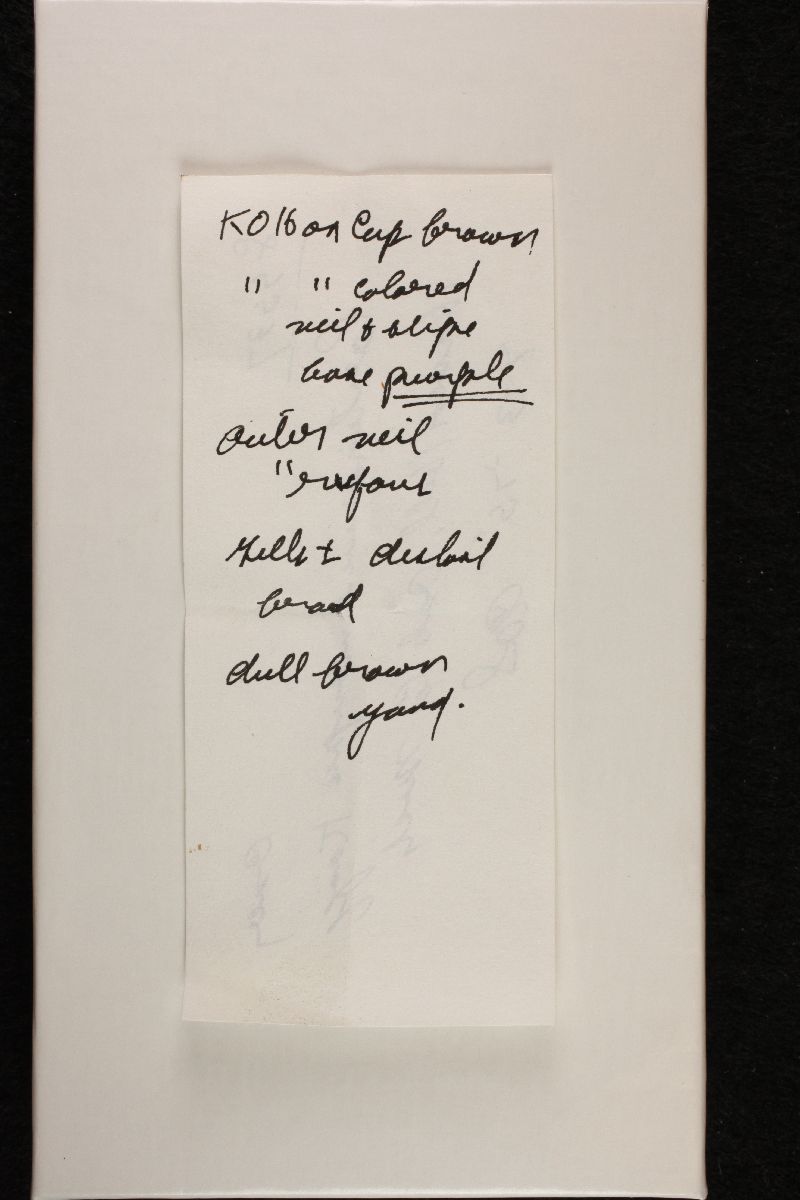 KOH on Cap brown
" " colored
veil & stipe
base purple
outer veil
"
Gills &
broad
dull brown
young.